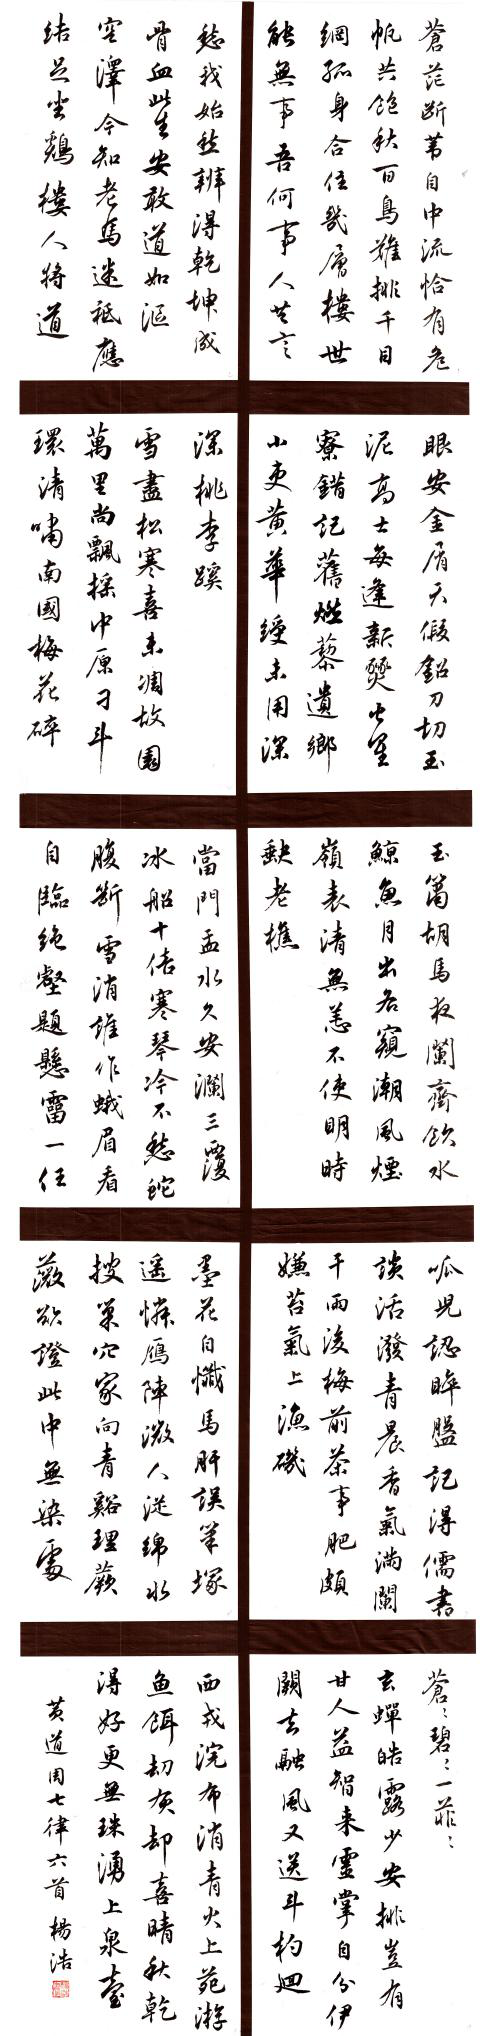 蒼茫斷葦自中流恰有危
帆共飽秋百鳥難排千日
網孤身合住幾層樓世
能無事吾何事人共言
愁我始愁辨得乾坤成
骨血此生安敢道如漚
空澤今知老馬迷秪應
結足坐鷄棲人將道
眼安金屑天假鉛刀切玉
泥高士每逢新爨火星
寮錯記舊燃藜遺鄉
小吏黃華綬未用深
深桃李蹊
雪盡松寒喜未凋故園
萬里尚飄搖中原刁斗
環清嘯南國梅花碎
玉簫胡馬夜闌齊飲水
鯨魚月出各窺潮風煙
嶺表清無恙不使明時
缺老樵
當門盂水久安瀾三覆
冰船十倍寒琴冷不愁蛇
腹斷雪消誰作蛾眉看
自臨絕壑題懸霤一任
呱兒認晬盤記得儒書
談活潑青晨香氣滿闌
干雨後梅前茶事肥頗
嫌苔氣上漁磯
墨花自懺馬肝誤筆塚
遥憐雁陣微人從綿水
搜巢穴家向青谿理蕨
薇欲證此中無染處
蒼〻碧〻一菲〻
玄蟬皓露少安排豈有
甘人益智来靈掌自分伊
闕去融風又送斗杓迴
西戎浣布消青火上苑游
魚餌劫灰却喜晴秋乾
得好更無珠湧上泉臺
黃道周七律六首 楊浩